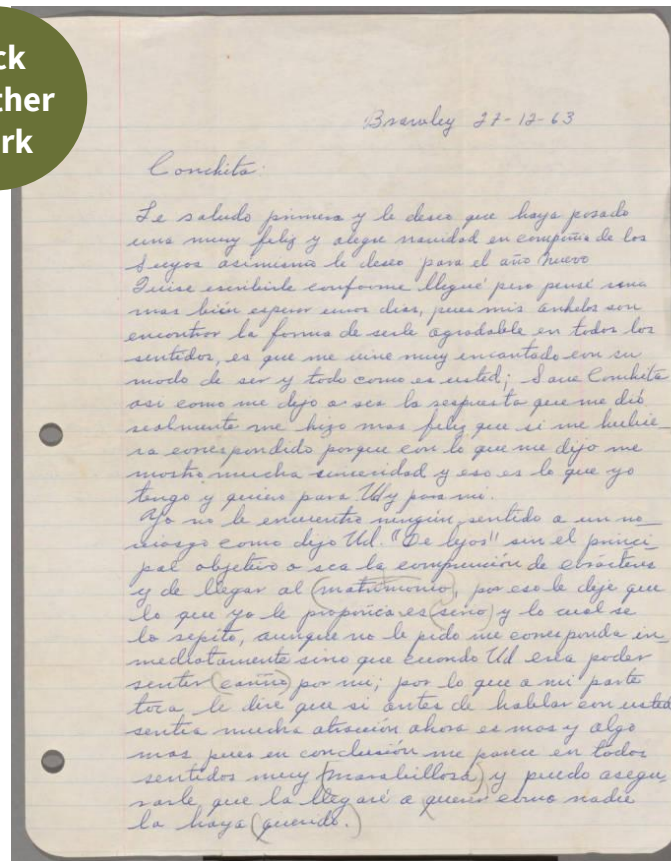 ck
ther
rk
Brawley 27-12-63
Conchita:
Le saludo primera y le deseo que haya pasado
una muy feliz y alegre navidad en compañia de los
suyos asimismo le deseo para el año nuevo
Quise escribirle conforme llegué pero pensé
mas bién esperar unos dias, pues mis anhelos son
encontrar la forma de serle agradable en todos los
sentidos, es que me vine muy encantado con su
modo de ser y todo como es usted; Save Conchita
asi como me dejo o sea la respuesta que me dió
realmente me hizo mas feliz que si me hubie_
ra correspondido porque con lo que me dijo me
mostro mucha sinceridad y eso es lo que yo
tengo y quiero para Ud y para mi.
Yo no le encuentro ningún sentido a un no_
viasgo como dijo Ud. "De lejos" sin el princi_
pal objetivo o sea la comprención de carácteres
y de llegar al (matrimonio), por eso le deje que
lo que yo le proponia es (serio) y lo cual se
lo repito, aunque no le pido me corresponda in_
mediatamente sino que cuando Ud crea poder
sentir (cariño) por mi; por lo que a mi parte
toca le dire que si antes de hablar con usted
sentia mucha atracción ahora es mas y algo
mas pues en conclusión me parece en todos
sentidos muy (marabillosa) y puedo asegu_
rarle que la llegaré a querer como nadie
la haya (querido.)